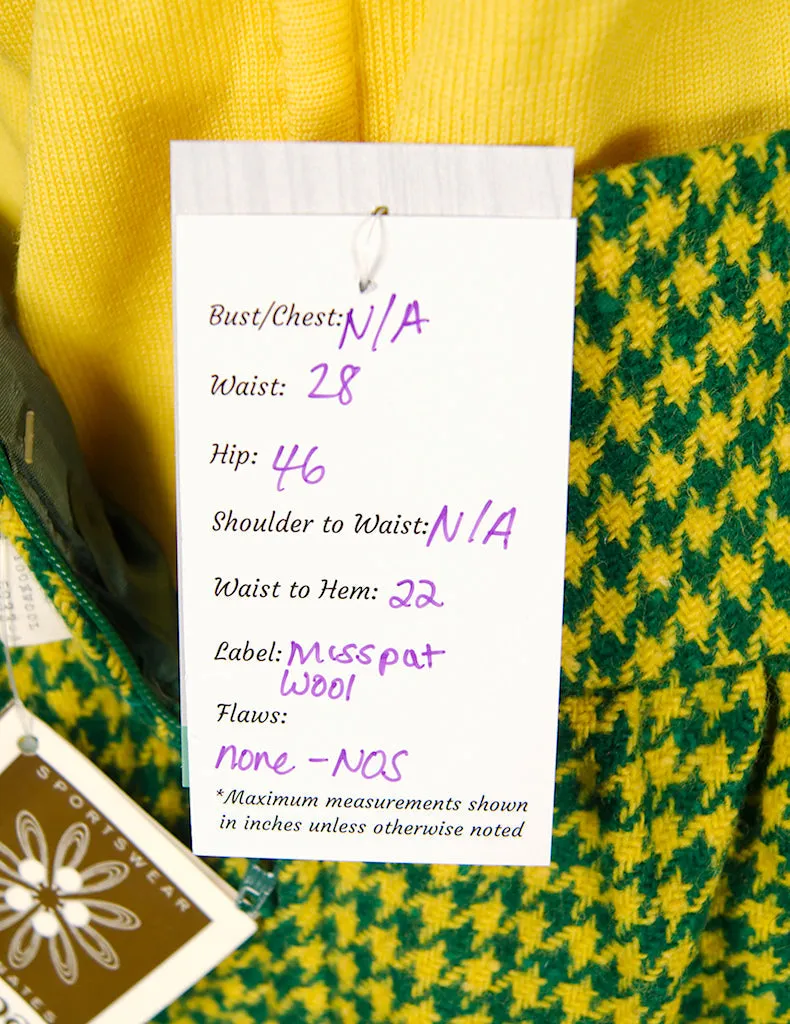 Bust/Chest: N/A
Waist: 28
Hip: 46
Shoulder to Waist: N/A
Waist to Hem: 22
Label: Misspat
Wool
Flaws:
none - NOS
*Maximum measurements shown
in inches unless otherwise noted
SPORTSWEAR